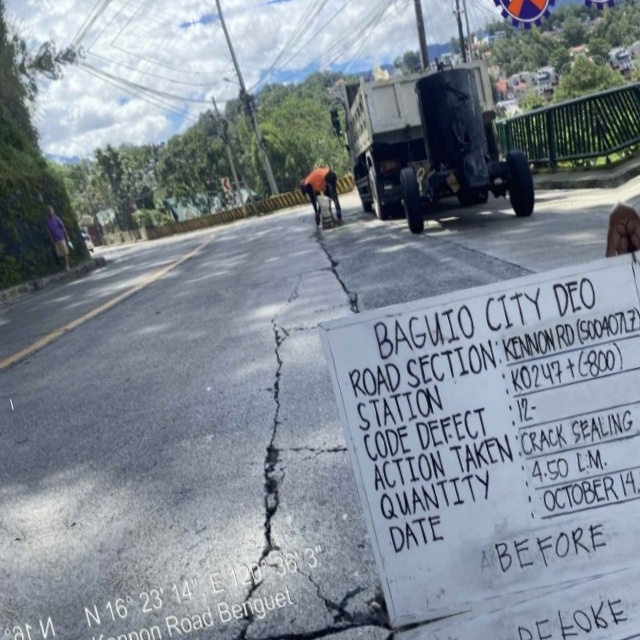 BAGUIO CITY DEO
ROAD SECTION : KENNON RD (S00407LZ)
STATION : K0247+(800)
CODE DEFECT : 12-
ACTION TAKEN : CRACK SEALING
QUANTITY : 4.50 L.M.
DATE : OCTOBER 14,
BEFORE
BEFORE
N 16° 23' 14" E 120° 36' 3"
Kennon Road Benguet